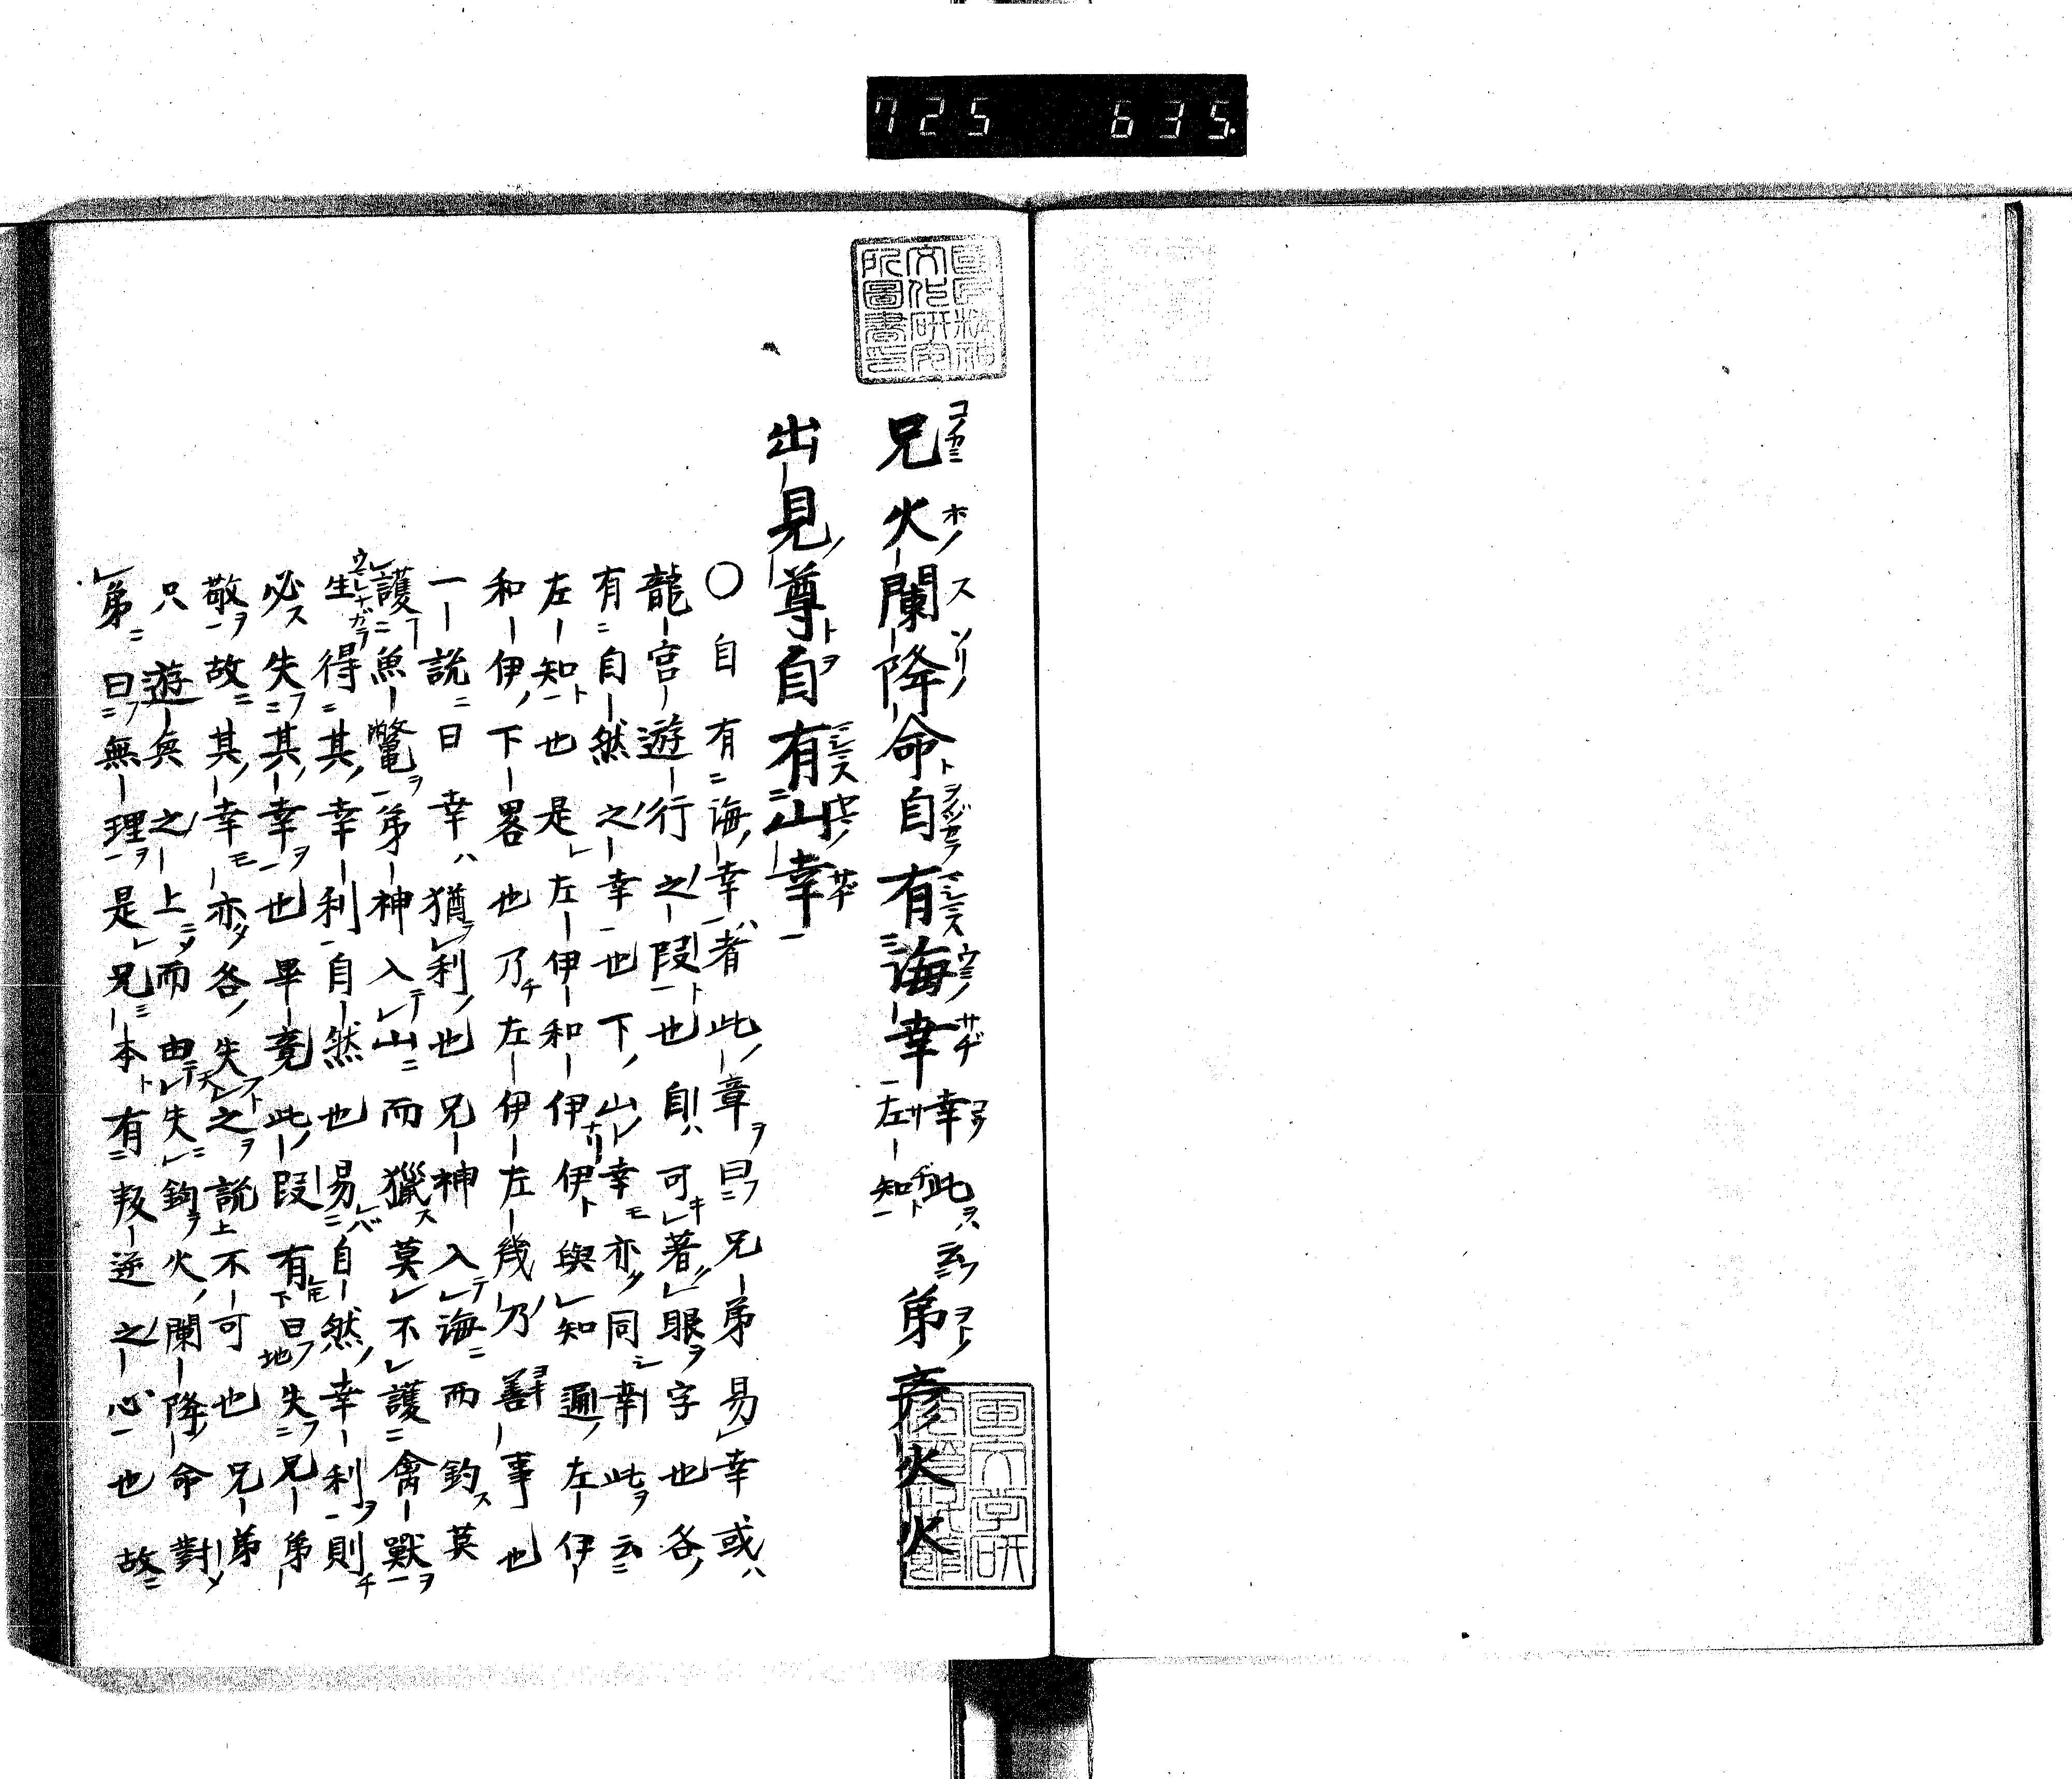 725 635
兄火闌降命自有海幸幸此云左知弟彦火火
出見尊自有山幸
○自有海幸者此章曰兄弟易幸或
龍宮遊行之段也自可著眼字也各
有自然之幸也下山幸亦同幸此云
左知也是左伊和伊伊與知通左伊
和伊下畧也乃左伊左幾乃善事也
一說曰幸猶利也兄神入海而釣莫
護魚鼈弟神入山而獵莫不護禽獸
生得其幸利自然也易自然幸利則
必失其幸也畢竟此段有曰失兄弟
敬故其幸亦各失之說不可也兄弟
只遊興之上而由失鉤火闌降命對
弟曰無理是兄本有叛逆之心也故